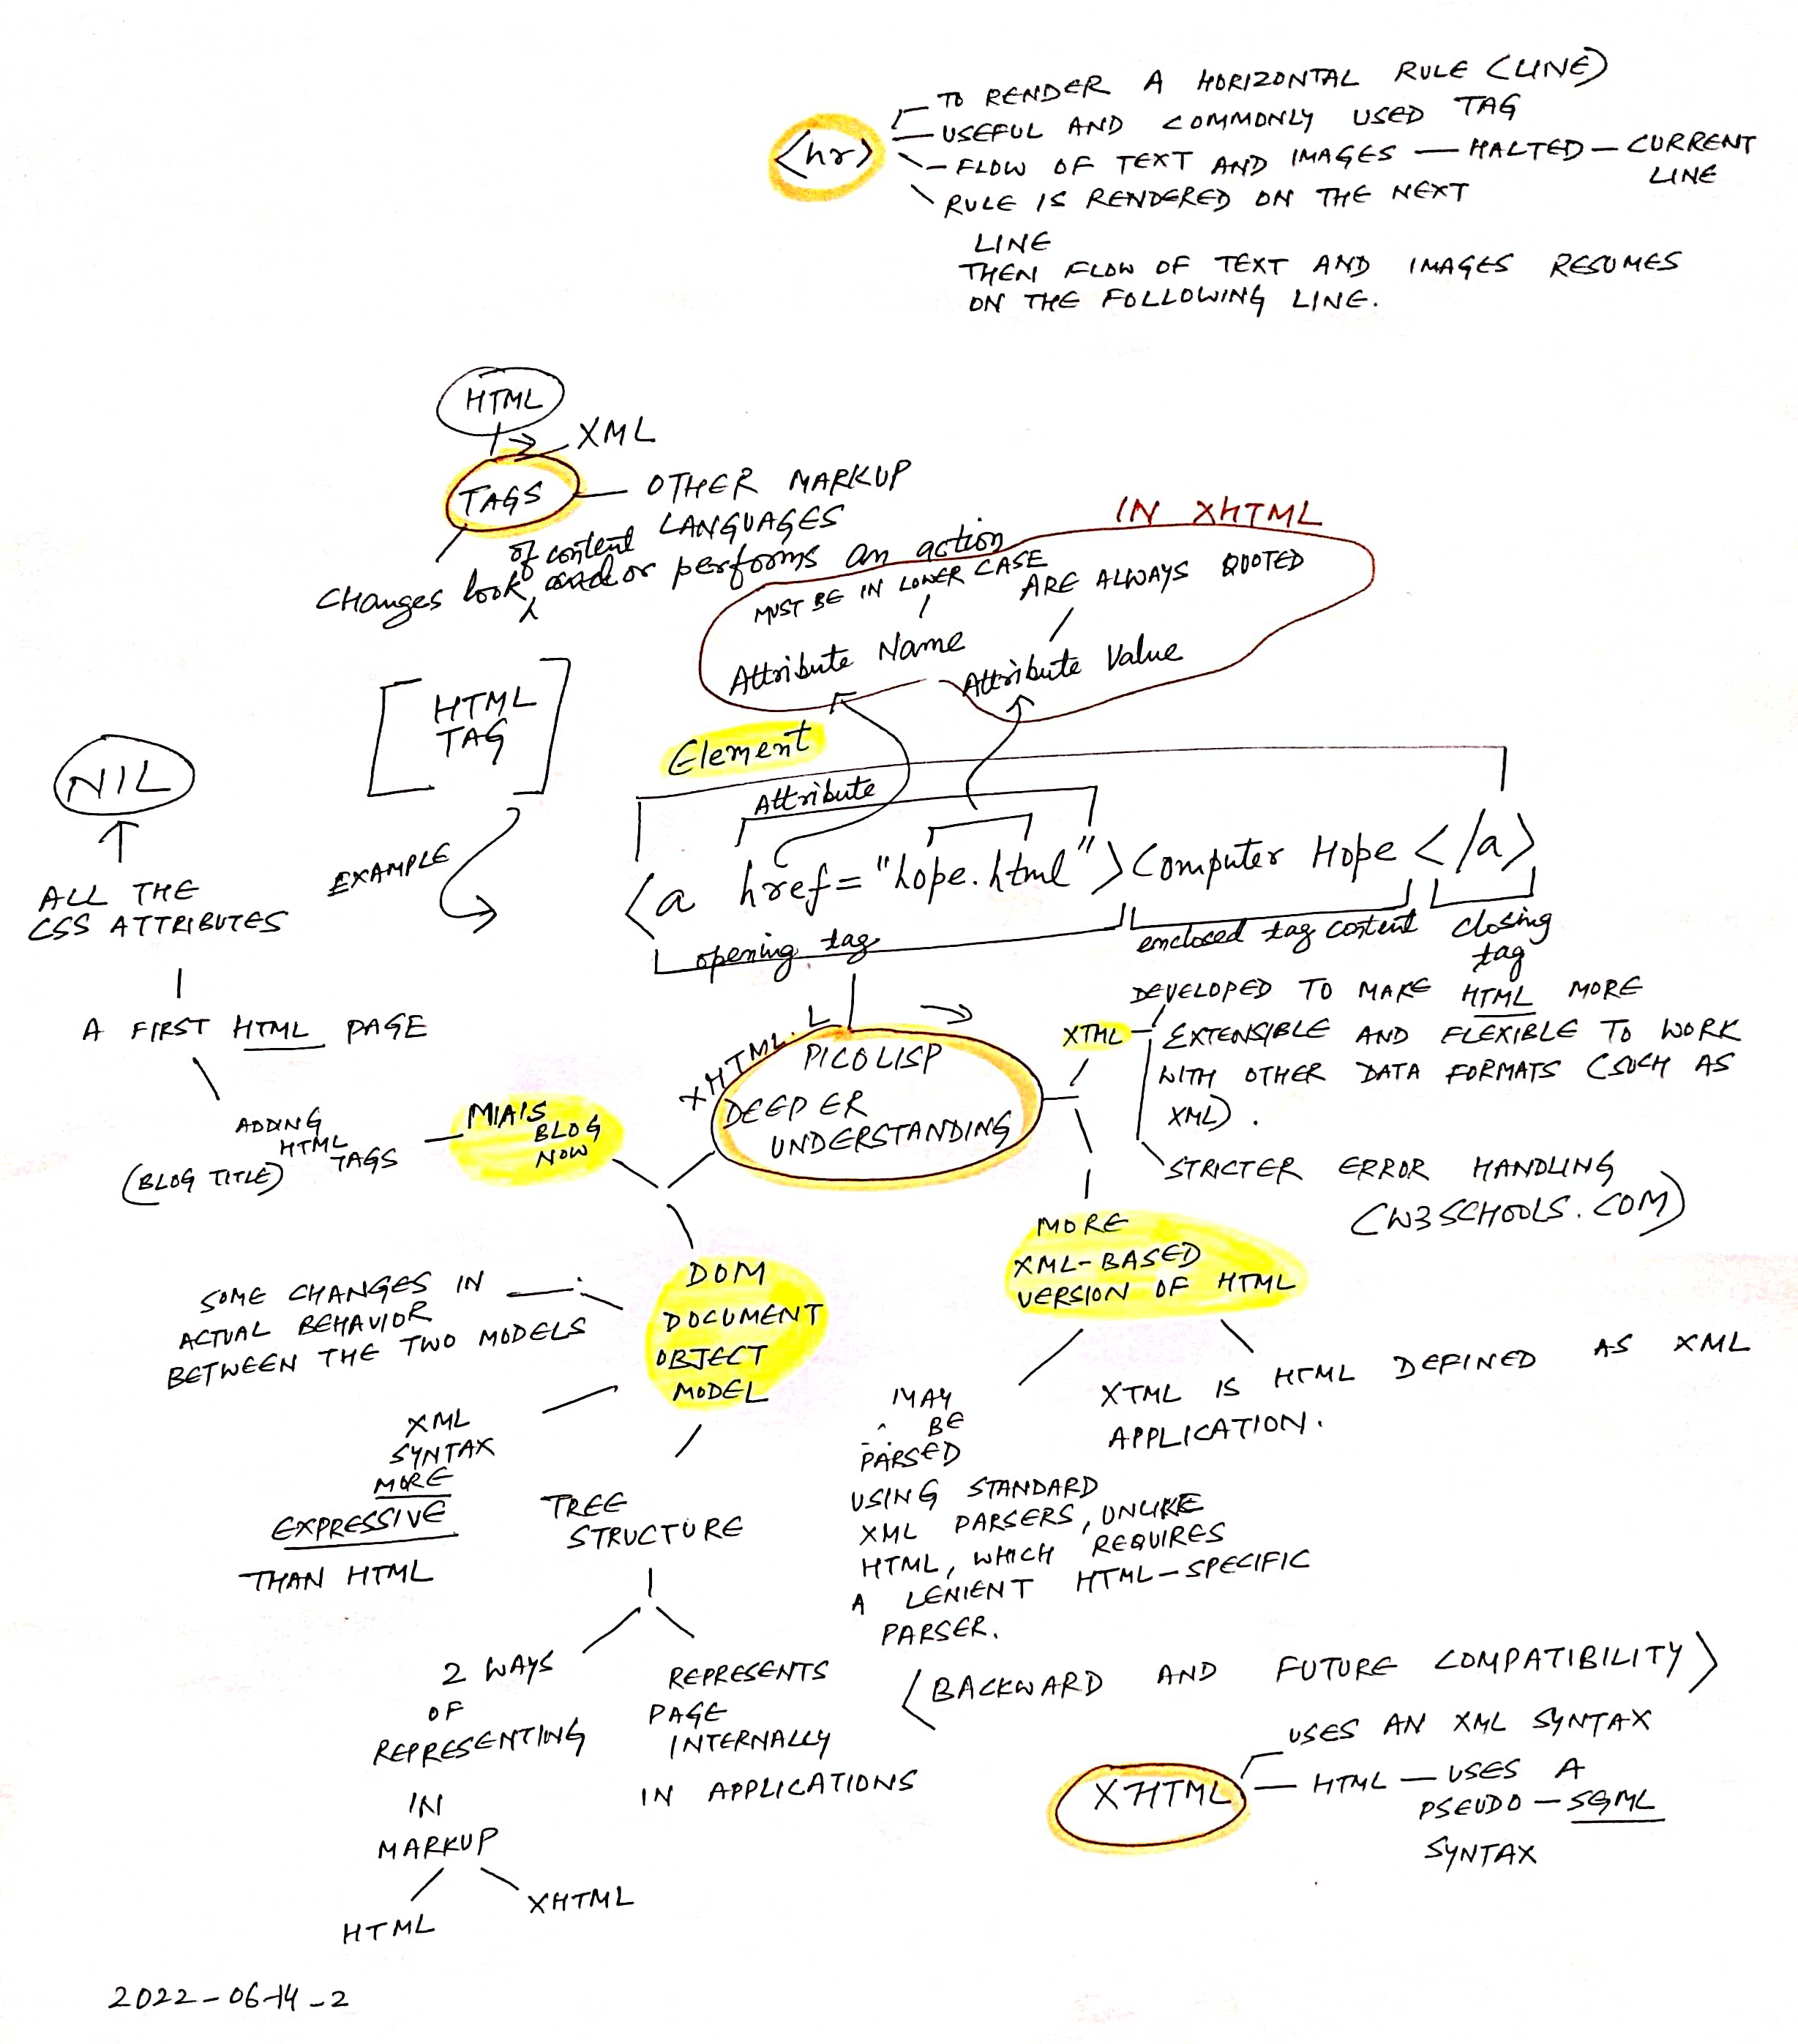 <hr>
TO RENDER A HORIZONTAL RULE (LINE)
USEFUL AND COMMONLY USED TAG
FLOW OF TEXT AND IMAGES — HALTED — CURRENT
LINE
RULE IS RENDERED ON THE NEXT
LINE
THEN FLOW OF TEXT AND IMAGES RESUMES
ON THE FOLLOWING LINE.
HTML
XML
TAGS — OTHER MARKUP
LANGUAGES
of content
Changes look and or performs an action
IN XHTML
MUST BE IN LOWER CASE
ARE ALWAYS QUOTED
Attribute Name
Attribute Value
[HTML
TAG]
EXAMPLE
Element
Attribute
<a href="hope.html">Computer Hope</a>
opening tag
enclosed tag content
closing
tag
NIL
ALL THE
CSS ATTRIBUTES
A FIRST HTML PAGE
ADDING
HTML
TAGS
(BLOG TITLE)
MIAIS
BLOG
NOW
XHTML.L
PICOLISP
DEEPER
UNDERSTANDING
XTML
DEVELOPED TO MAKE HTML MORE
EXTENSIBLE AND FLEXIBLE TO WORK
WITH OTHER DATA FORMATS (SUCH AS
XML).
STRICTER ERROR HANDLING
(W3SCHOOLS.COM)
MORE
XML-BASED
VERSION OF HTML
XTML IS HTML DEFINED AS XML
APPLICATION.
MAY
BE
PARSED
USING STANDARD
XML PARSERS, UNLIKE
HTML, WHICH REQUIRES
A LENIENT HTML-SPECIFIC
PARSER.
DOM
DOCUMENT
OBJECT
MODEL
SOME CHANGES IN
ACTUAL BEHAVIOR
BETWEEN THE TWO MODELS
XML
SYNTAX
MORE
EXPRESSIVE
THAN HTML
TREE
STRUCTURE
2 WAYS
OF
REPRESENTING
IN
MARKUP
HTML
XHTML
REPRESENTS
PAGE
INTERNALLY
IN APPLICATIONS
(BACKWARD AND FUTURE COMPATIBILITY)
XHTML
USES AN XML SYNTAX
HTML — USES A
PSEUDO-SGML
SYNTAX
2022-06-14-2